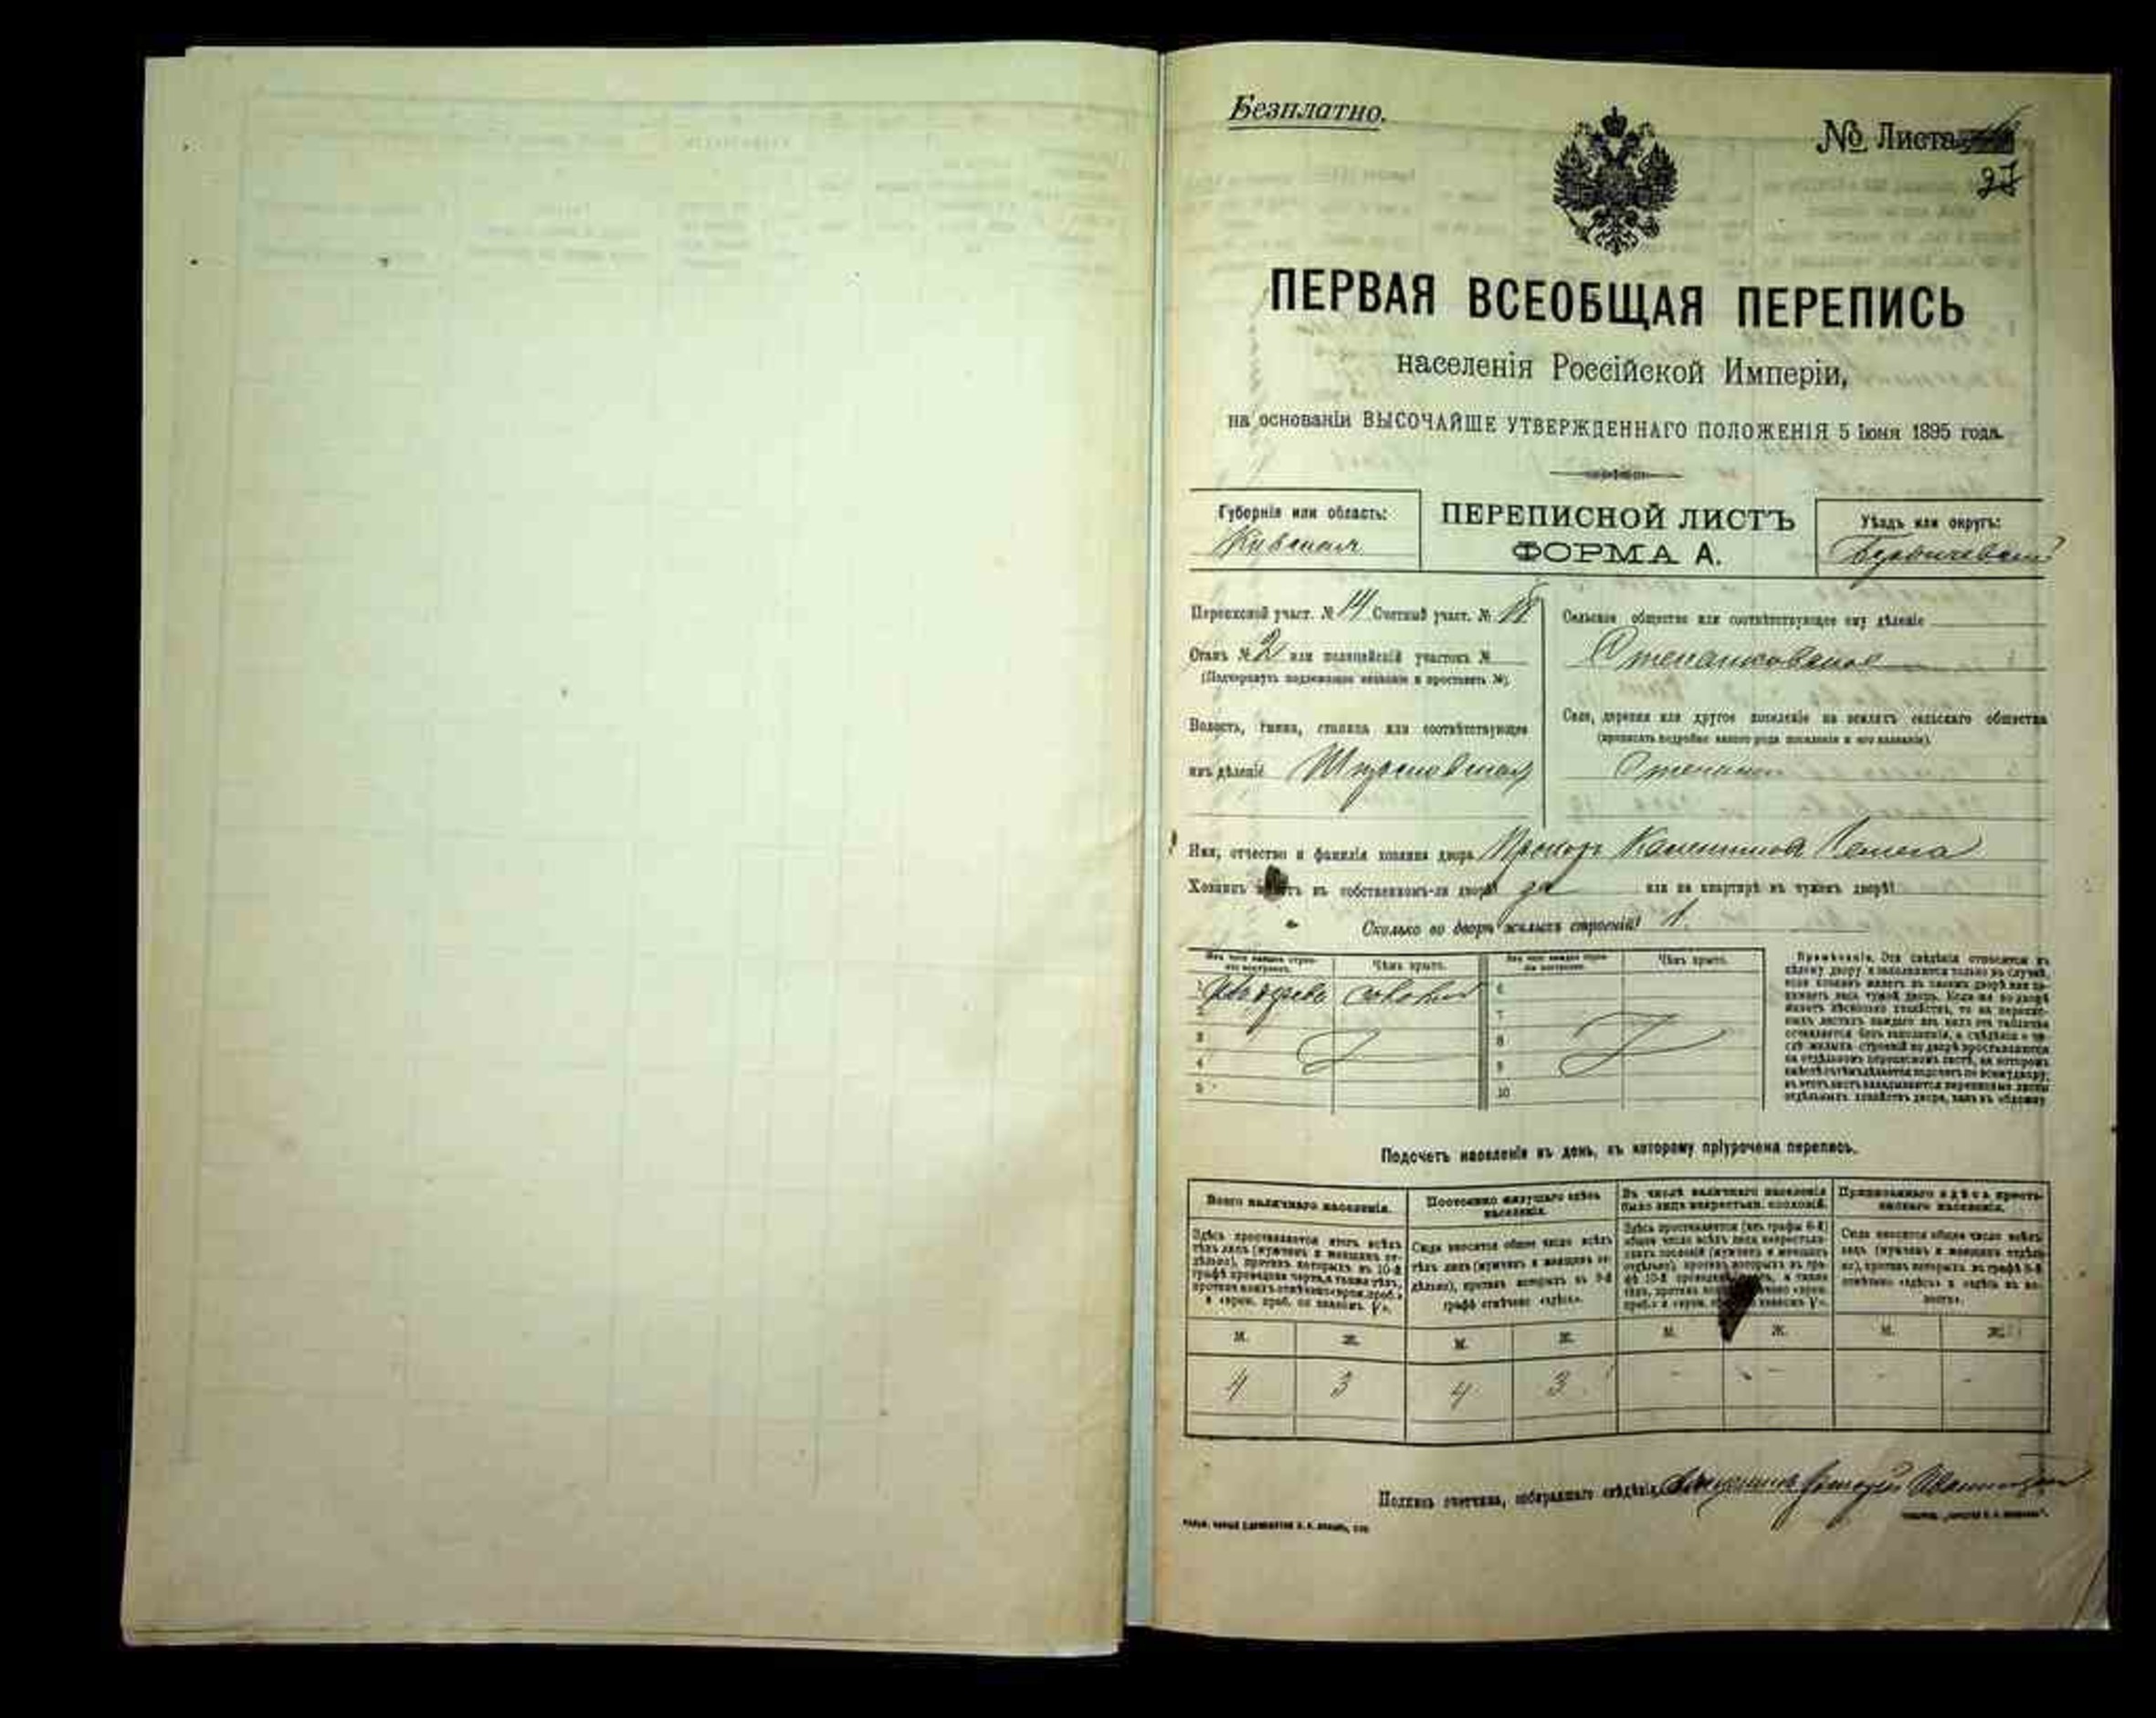 Безплатно.
№ Листа
27
ПЕРВАЯ ВСЕОБЩАЯ ПЕРЕПИСЬ
населенія Россійской Имперіи,
на основаніи ВЫСОЧАЙШЕ УТВЕРЖДЕННАГО ПОЛОЖЕНІЯ 5 Іюня 1895 года.
Губернія или область:
Кіевская
ПЕРЕПИСНОЙ ЛИСТЪ
ФОРМА А.
Уѣздъ или округъ:
Бердичевскій
Переписной участ. № 14 Счетный участ. №
Станъ № 2 или полицейскій участокъ №
(Подчеркнуть подлежащее названіе и проставить №).
Волость, гмина, станица или соотвѣтствующее
имъ дѣленіе
Сельское общество или соотвѣтствующее ему дѣленіе
Степанковское
Село, деревня или другое поселеніе на земляхъ сельскаго общества
(прописать подробно какого рода поселеніе и его названіе).
Степанки
Имя, отчество и фамилія хозяина двора Прокопъ
Хозяинъ въ собственномъ-ли дворѣ? да или на квартирѣ въ чужомъ дворѣ?
Сколько во дворѣ жилыхъ строеній? 1.
Изъ чего каждое строеніе построено.
Чѣмъ крыто.
Изъ чего каждое строеніе построено.
Чѣмъ крыто.
1 дерева соломой 6
2 7
3 8
4 9
5 10
Примѣчаніе. Эти свѣдѣнія относятся къ
цѣлому двору и заполняются только въ случаѣ,
если хозяинъ живетъ въ своемъ дворѣ или за-
нимаетъ весь чужой дворъ. Если же во дворѣ
живетъ нѣсколько хозяйствъ, то на перепис-
ныхъ листахъ каждаго изъ нихъ эта табличка
оставляется безъ заполненія, а свѣдѣнія о чи-
слѣ жилыхъ строеній во дворѣ проставляются
на отдѣльномъ переписномъ листѣ, на которомъ
вмѣстѣ съ тѣмъ дѣлается подсчетъ по всему двору;
въ этотъ листъ вкладываются переписные листы
отдѣльныхъ хозяйствъ двора, какъ въ обложку
Подсчетъ населенія въ день, къ которому пріурочена перепись.
Всего наличнаго населенія.
Постоянно живущаго здѣсь
населенія.
Въ числѣ наличнаго населенія
было лицъ некрестьян. сословій.
Приписаннаго здѣсь кресть-
янскаго населенія.
Здѣсь проставляется итогъ всѣхъ
тѣхъ лицъ (мужчинъ и женщинъ от-
дѣльно), противъ которыхъ въ 10-й
графѣ проведена черта, а также тѣхъ,
противъ коихъ отмѣчено «врем. проб.»
и «врем. проб. со знакомъ V».
Сюда вносится общее число всѣхъ
тѣхъ лицъ (мужчинъ и женщинъ от-
дѣльно), противъ которыхъ въ 9-й
графѣ отмѣчено «здѣсь».
Здѣсь проставляется (изъ графы 6-й)
общее число всѣхъ лицъ некрестьян-
скихъ сословій (мужчинъ и женщинъ
отдѣльно), противъ которыхъ въ гра-
фѣ 10-й а также
тѣхъ, противъ «врем.
проб.» и «врем. знакомъ V».
Сюда вносится общее число всѣхъ
лицъ (мужчинъ и женщинъ отдѣль-
но), противъ которыхъ въ графѣ 8-й
отмѣчено «здѣсь» и «здѣсь въ во-
лости».
М. Ж. М. Ж. М. Ж. М. Ж.
4 3 4 3 - - - -
Подпись счетчика, собиравшаго свѣдѣнія